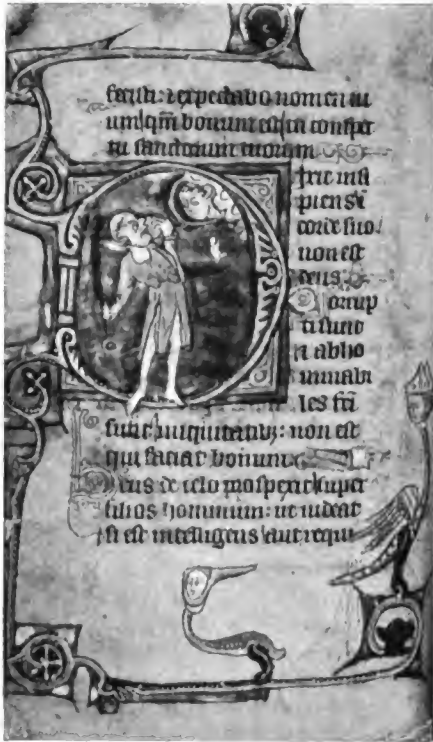 fecisti: ⁊ expectabo nomen tu
um qm̄ bonum est in conspec
tu sanctorum tuorum
Dixit insi
piens ī
corde suo
non est
deus
Corrup
ti sunt
et abho
minabi
les fc̄i
sunt in iniquitatibꝫ: non est
qui faciat bonum
Deus de celo prospexit super
filios hominum: ut uideat
si est intelligens aut requi